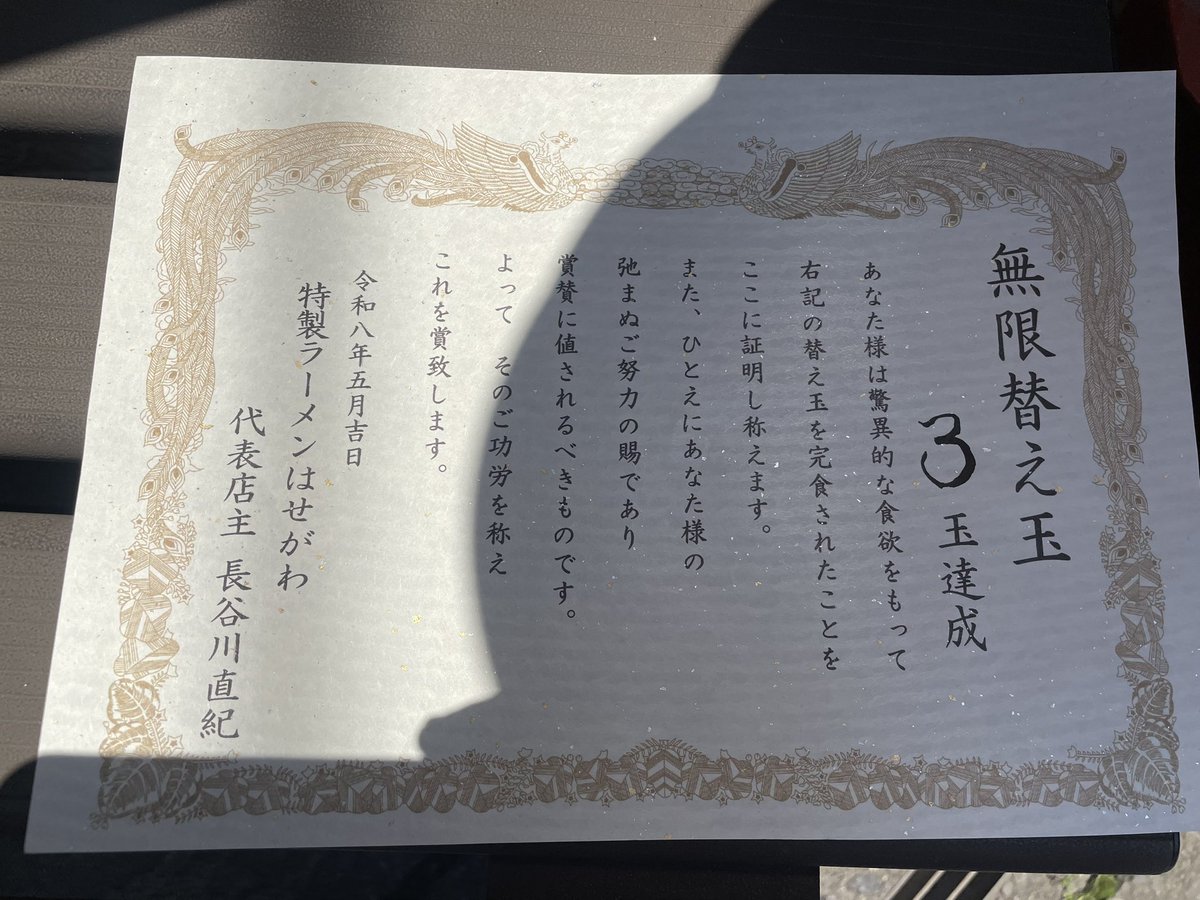 無限替え玉
3 玉達成
あなた様は驚異的な食欲をもって
右記の替え玉を完食されたことを
ここに証明し称えます。
また、ひとえにあなた様の
弛まぬご努力の賜であり
賞賛に値されるべきものです。
よって そのご功労を称え
これを賞致します。
令和八年五月吉日
特製ラーメンはせがわ
代表店主 長谷川直紀